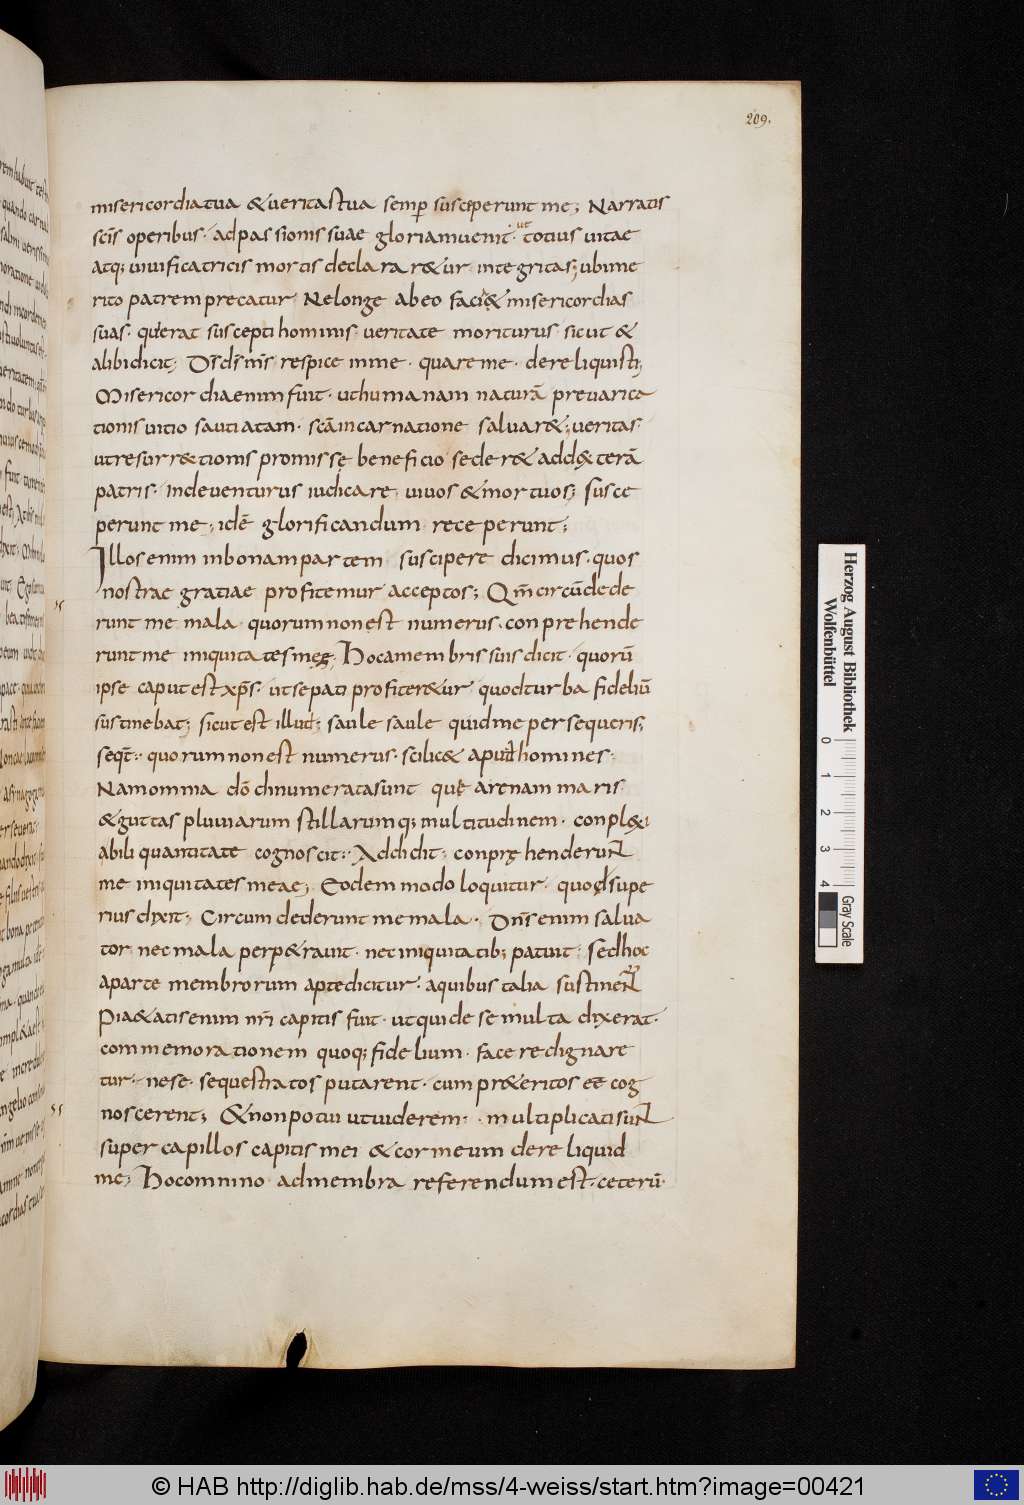 209.
misericordia tua & veritas tua semp̄ susceperunt me; Narratis
sc̄is operibus· ad passionis suae gloriam uenit· ut totius uitae
atq; uiuificatricis mortis declarar&ur integritas; ubi me
rito patrem precatur Ne longe abeo faci& misericordias
suas· querat suscepti hominis· ueritate moriturus· sicut &
alibi dicit; Ds̄ ds̄ ms̄ respice in me· quare me· dereliquisti;
Misericordiae enim fuit· ut humanam naturā preuarica
tionis uitio sautiatam· sc̄a incarnatione saluar&; ueritas·
ut resurr&tionis promissę beneficio seder& ad d&terā
patris· inde uenturus iudicare· uiuos & mortuos; susce
perunt me; idē glorificandum receperunt;
Illos enim in bonam partem suscipere dicimus· quos
nostrae gratiae profitemur acceptos; Qm̄ circūdede
runt me mala· quorum non est numerus· conprehende
runt me iniquitates meę· Hoc a membris suis dicit· quorū
ipse caput est xp̄s· ut se pati profiter&ur quod turba fideliū
sustinebat; sicut est illud; saule saule quid me persequeris;
seq̄t· quorum non est numerus· scilic& apud homines·
Nam omnia dō dinumerata sunt quę arenam maris
& guttas pluuiarum stillarumq; multitudinem· conpl&i
abili quantitate cognoscit· Addidit; conpręhenderunt
me iniquitates meae; Eodem modo loquitur· quod supe
rius dixit; Circumdederunt me mala· Dn̄s enim salua
tor nec mala perp&rauit· nec iniquitatib; patuit; sed hoc
a parte membrorum apte dicitur· a quibus talia sustinentur
Pi&atis enim nr̄i capitis fuit· ut qui de se multa dixerat·
commemorationem quoq; fidelium· facere dignare
tur· ne se· sequestratos putarent· cum pr&eritos eē cog
noscerent; & non potui ut uiderem· multiplicati sunt
super capillos capitis mei & cor meum dereliquid
me; Hoc omnino ad membra referendum est· ceterū·
Herzog August Bibliothek
Wolfenbüttel
0 1 2 3 4
Gray Scale
© HAB http://diglib.hab.de/mss/4-weiss/start.htm?image=00421